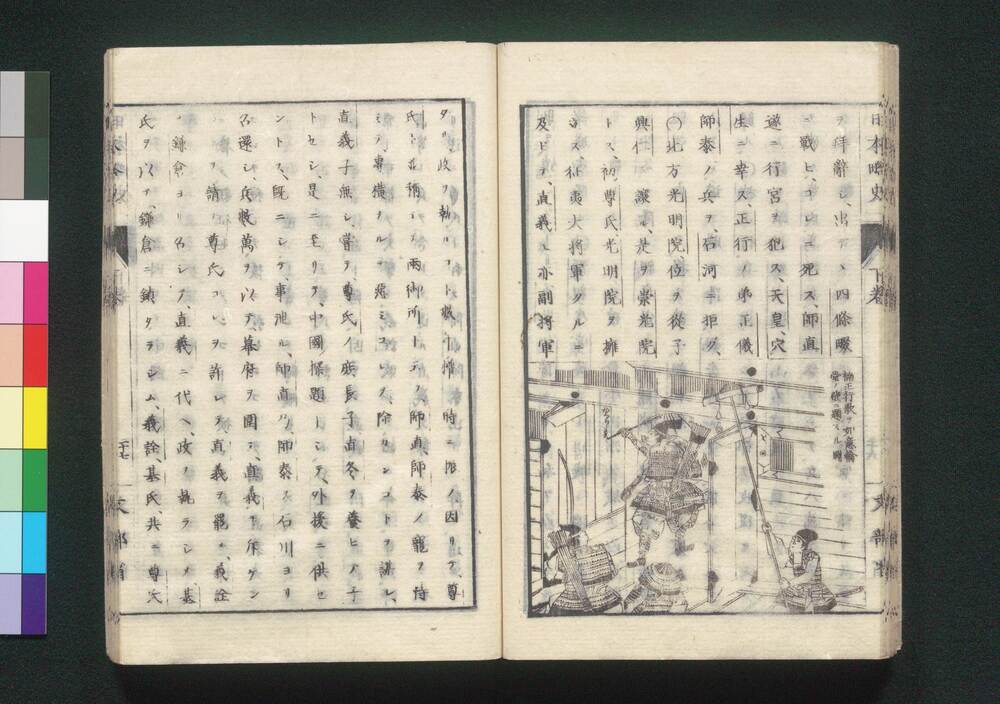 ヲ拜辭シ、出テヽ四條畷
ニ戰ヒ、コレニ死ス、師直
遂ニ行宮ヲ犯ス、天皇、穴
生ニ幸ス、正行ノ弟正儀
師泰ノ兵ヲ、石河ニ拒グ、
〇北方光明院位ヲ從子
興仁ニ讓ル、是ヲ崇光院
トス、初尊氏光明院ヲ擁
立ス、征夷大將軍タルニ
及ビテ、直義モ亦副將軍
楠正行歌ヲ如意輪
堂ノ壁ニ題スル圖
タリ、政ヲ執リ
時ニ
因リテ、尊
氏ト並稱シテ兩御所トス、師直、師泰ノ寵ヲ恃
ミテ專横ナルヲ
コレヲ除カンコトヲ謀ル、
直義子無シ、嘗テ尊氏ノ庶長子直冬ヲ養ヒテ子
トセシ、是ニ至リテ、中國探題トシテ、外援ニ供セ
ントス、既ニシテ事泄ル、師直乃師泰ヲ石川ヨリ
召還シ、兵帳萬ヲ以テ、幕府ヲ圍ミ、直義ヲ斥ケン
ヿヲ請フ、尊氏コレヲ許シテ、直義ヲ罷メ、義詮
ヲ鎌倉ヨリ召シテ、直義ニ代ヘ、政ヲ執ラシメ、基
氏ヲ以テ、鎌倉ニ鎭タラシム、義詮、基氏、共ニ尊氏
日本略史
下卷
文部省